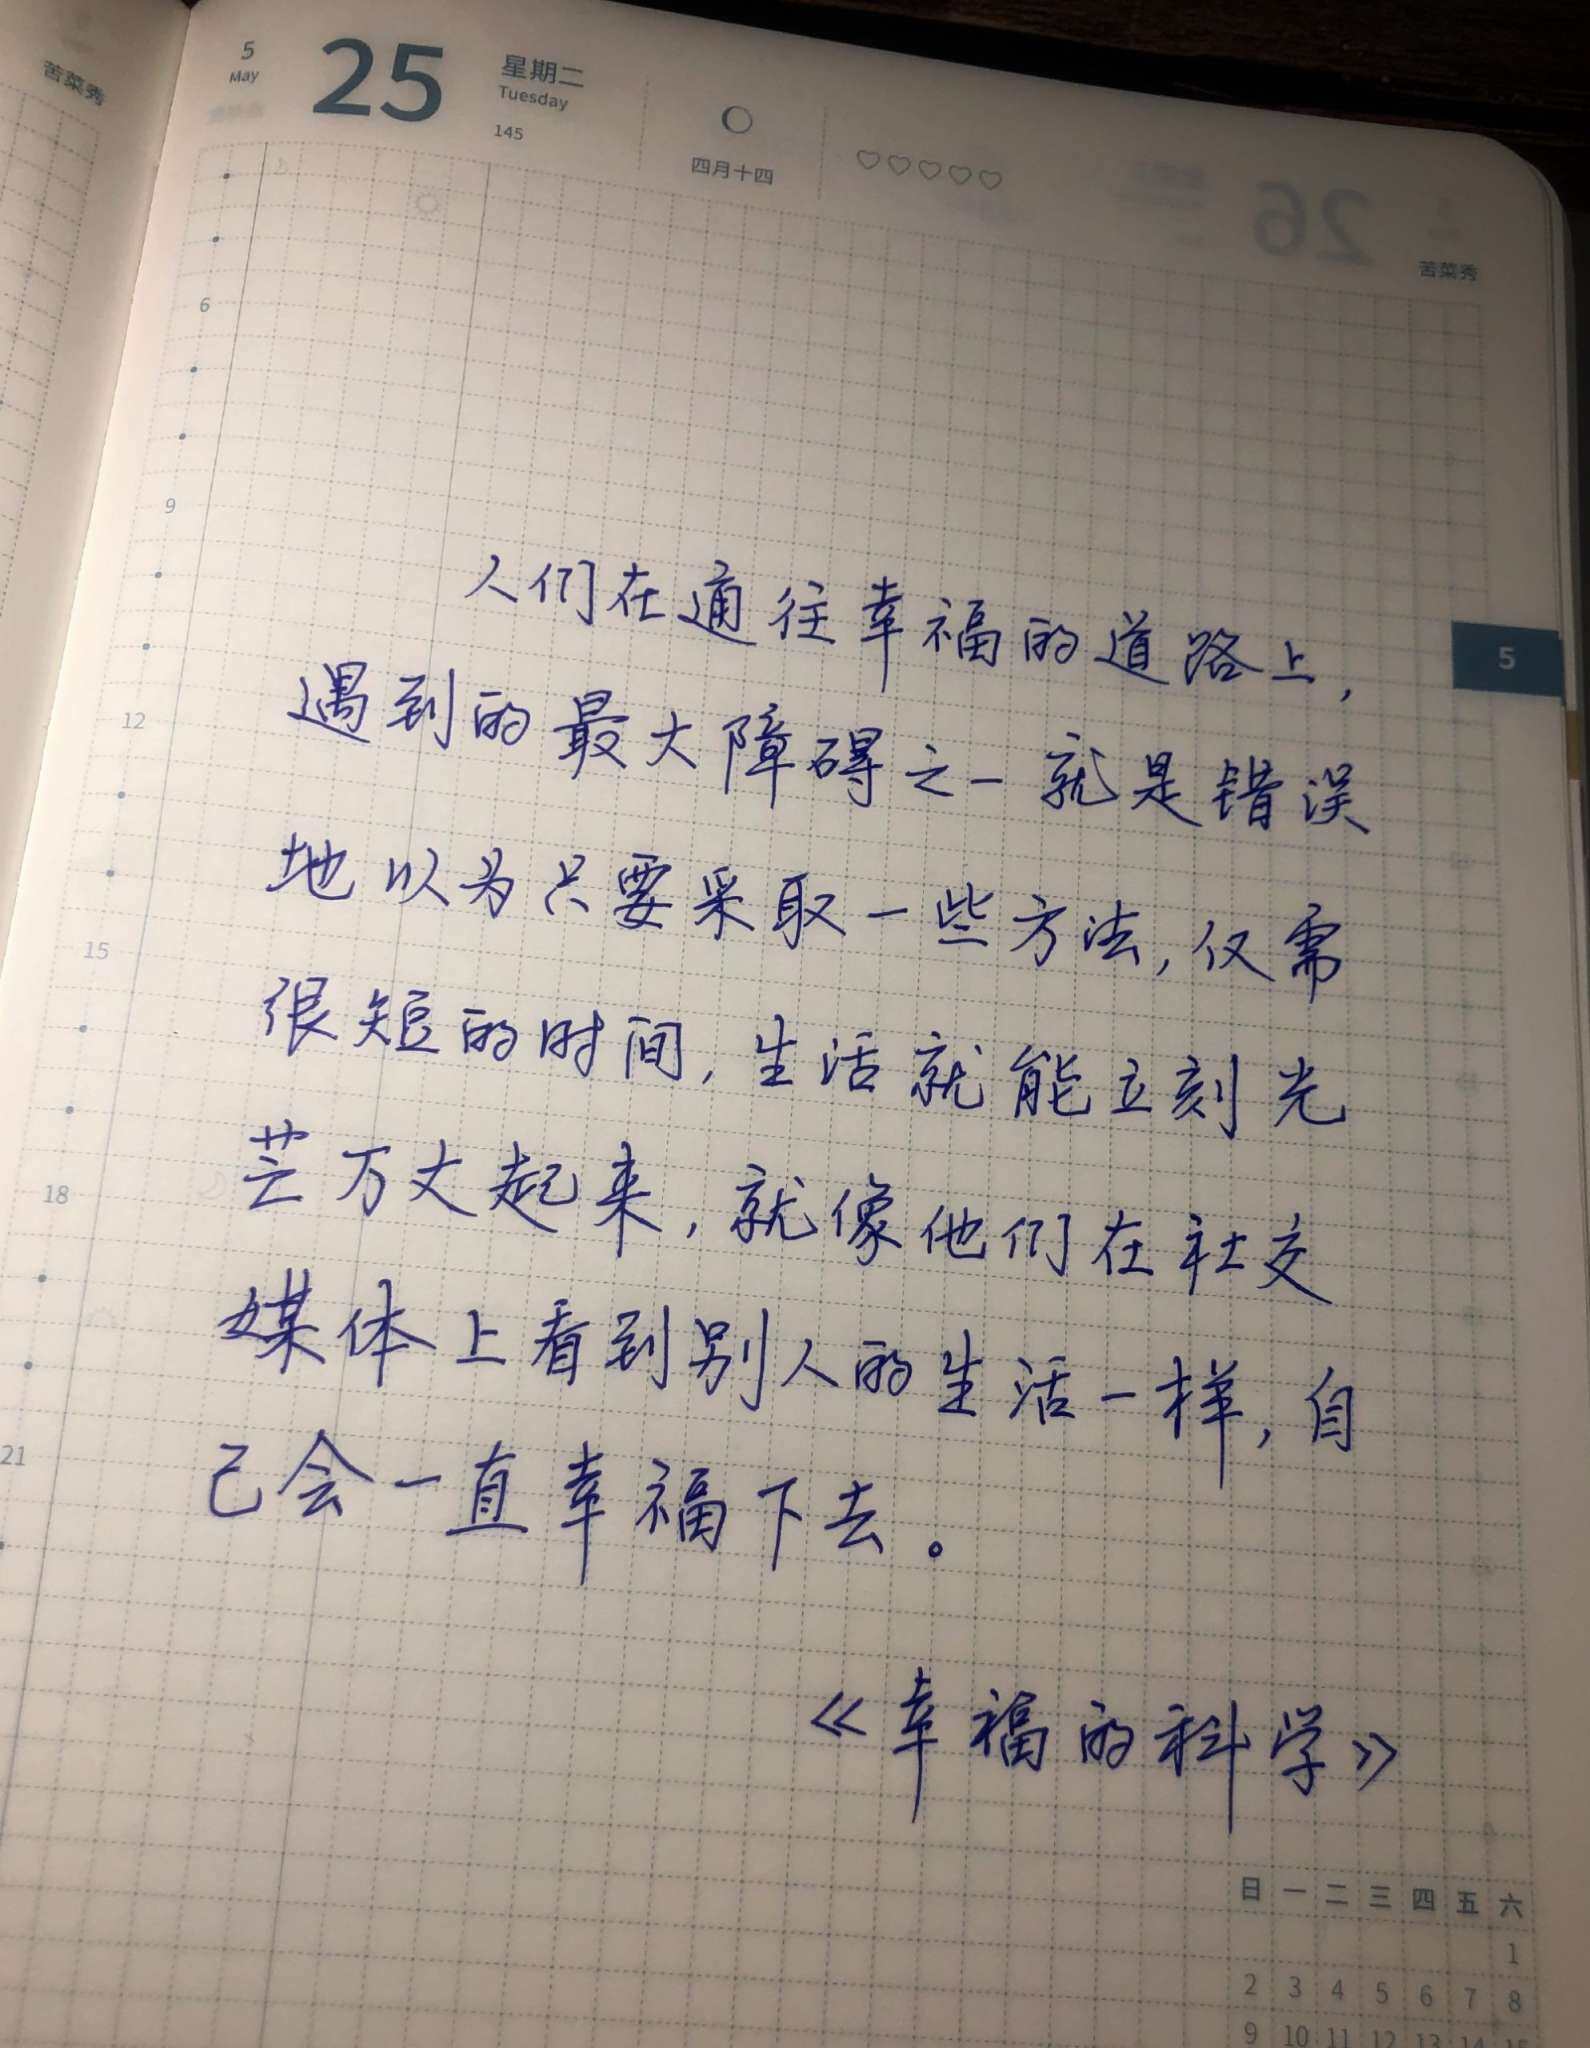 苦菜秀
5
May
25
星期二
Tuesday
145
四月十四
26
苦菜秀
6
9
12
15
18
21
5
人们在通往幸福的道路上,
遇到的最大障碍之一就是错误
地以为只要采取一些方法,仅需
很短的时间,生活就能立刻光
芒万丈起来,就像他们在社交
媒体上看到别人的生活一样,自
己会一直幸福下去。
《幸福的科学》
日 一 二 三 四 五 六
1
2 3 4 5 6 7 8
9 10 11 12 13 14 15